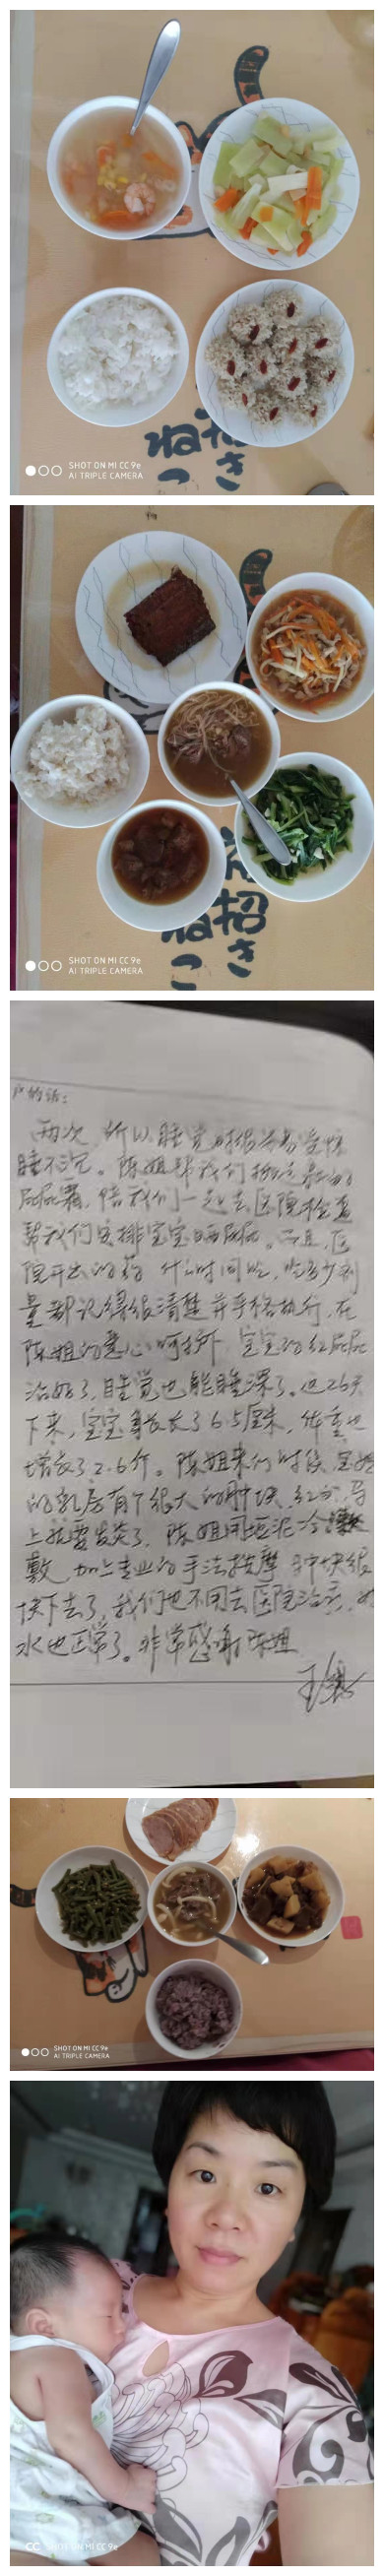 SHOT ON MI CC 9e
AI TRIPLE CAMERA
招
ね き
こ
SHOT ON MI CC 9e
AI TRIPLE CAMERA
招
ね き
こ
户的话：
两次，所以睡觉时很容易受惊
睡不沉。陈姐帮我们
屁屁霜，陪我们一起去医院检查
帮我们安排宝宝晒屁屁。而且，医
院开出的药，什么时间吃，吃多少剂
量都记得很清楚并严格执行，在
陈姐的悉心呵护下，宝宝的红屁屁
治好了，睡觉也能睡深了。这26天
下来，宝宝身长长了6.5厘米，体重也
增长了2.6斤。陈姐来的时候，宝妈
的乳房有个很大的肿块，红的，马
上就要发炎了，陈姐用土豆泥冷
敷，加上专业的手法按摩，肿块很
快下去了，我们也不用去医院治疗，奶
水也正常了。非常感谢陈姐
SHOT ON MI CC 9e
AI TRIPLE CAMERA
SHOT ON MI CC 9e